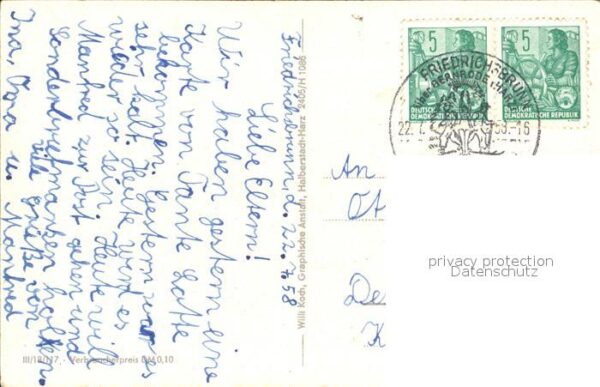 Friedrichsbrunn, d. 22.7.58
Liebe Eltern!
Wir haben gestern eine
Karte von Tante
bekommen. Gestern war es
sehr kalt. Heute wird es
wieder so sein. Heute will
Manfred zur Post gehen und
Sondermarken holen.
Viele Grüße von
Ina, u. Manfred
Willi Koch, Graphische Anstalt, Halberstadt-Harz 2405/H 1086
III/18/117 - Verbraucherpreis DM 0,10
5
DEUTSCHE
DEMOKRATISCHE REPUBLIK
5
DEUTSCHE
DEMOKRATISCHE REPUBLIK
FRIEDRICHSBRUNN
22.7.
58.-16
An
De
K
privacy protection
Datenschutz